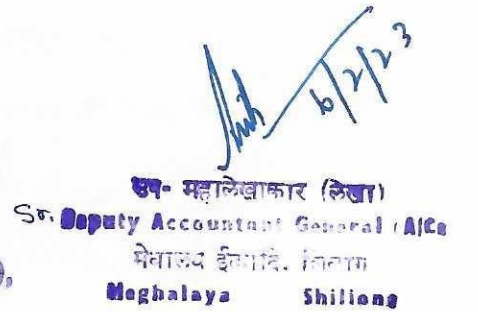 6/2/23
उप- महालेखाकार (लेखा)
Sr. Deputy Accountant General (A/Cs
मेघालय
Meghalaya Shillong
),